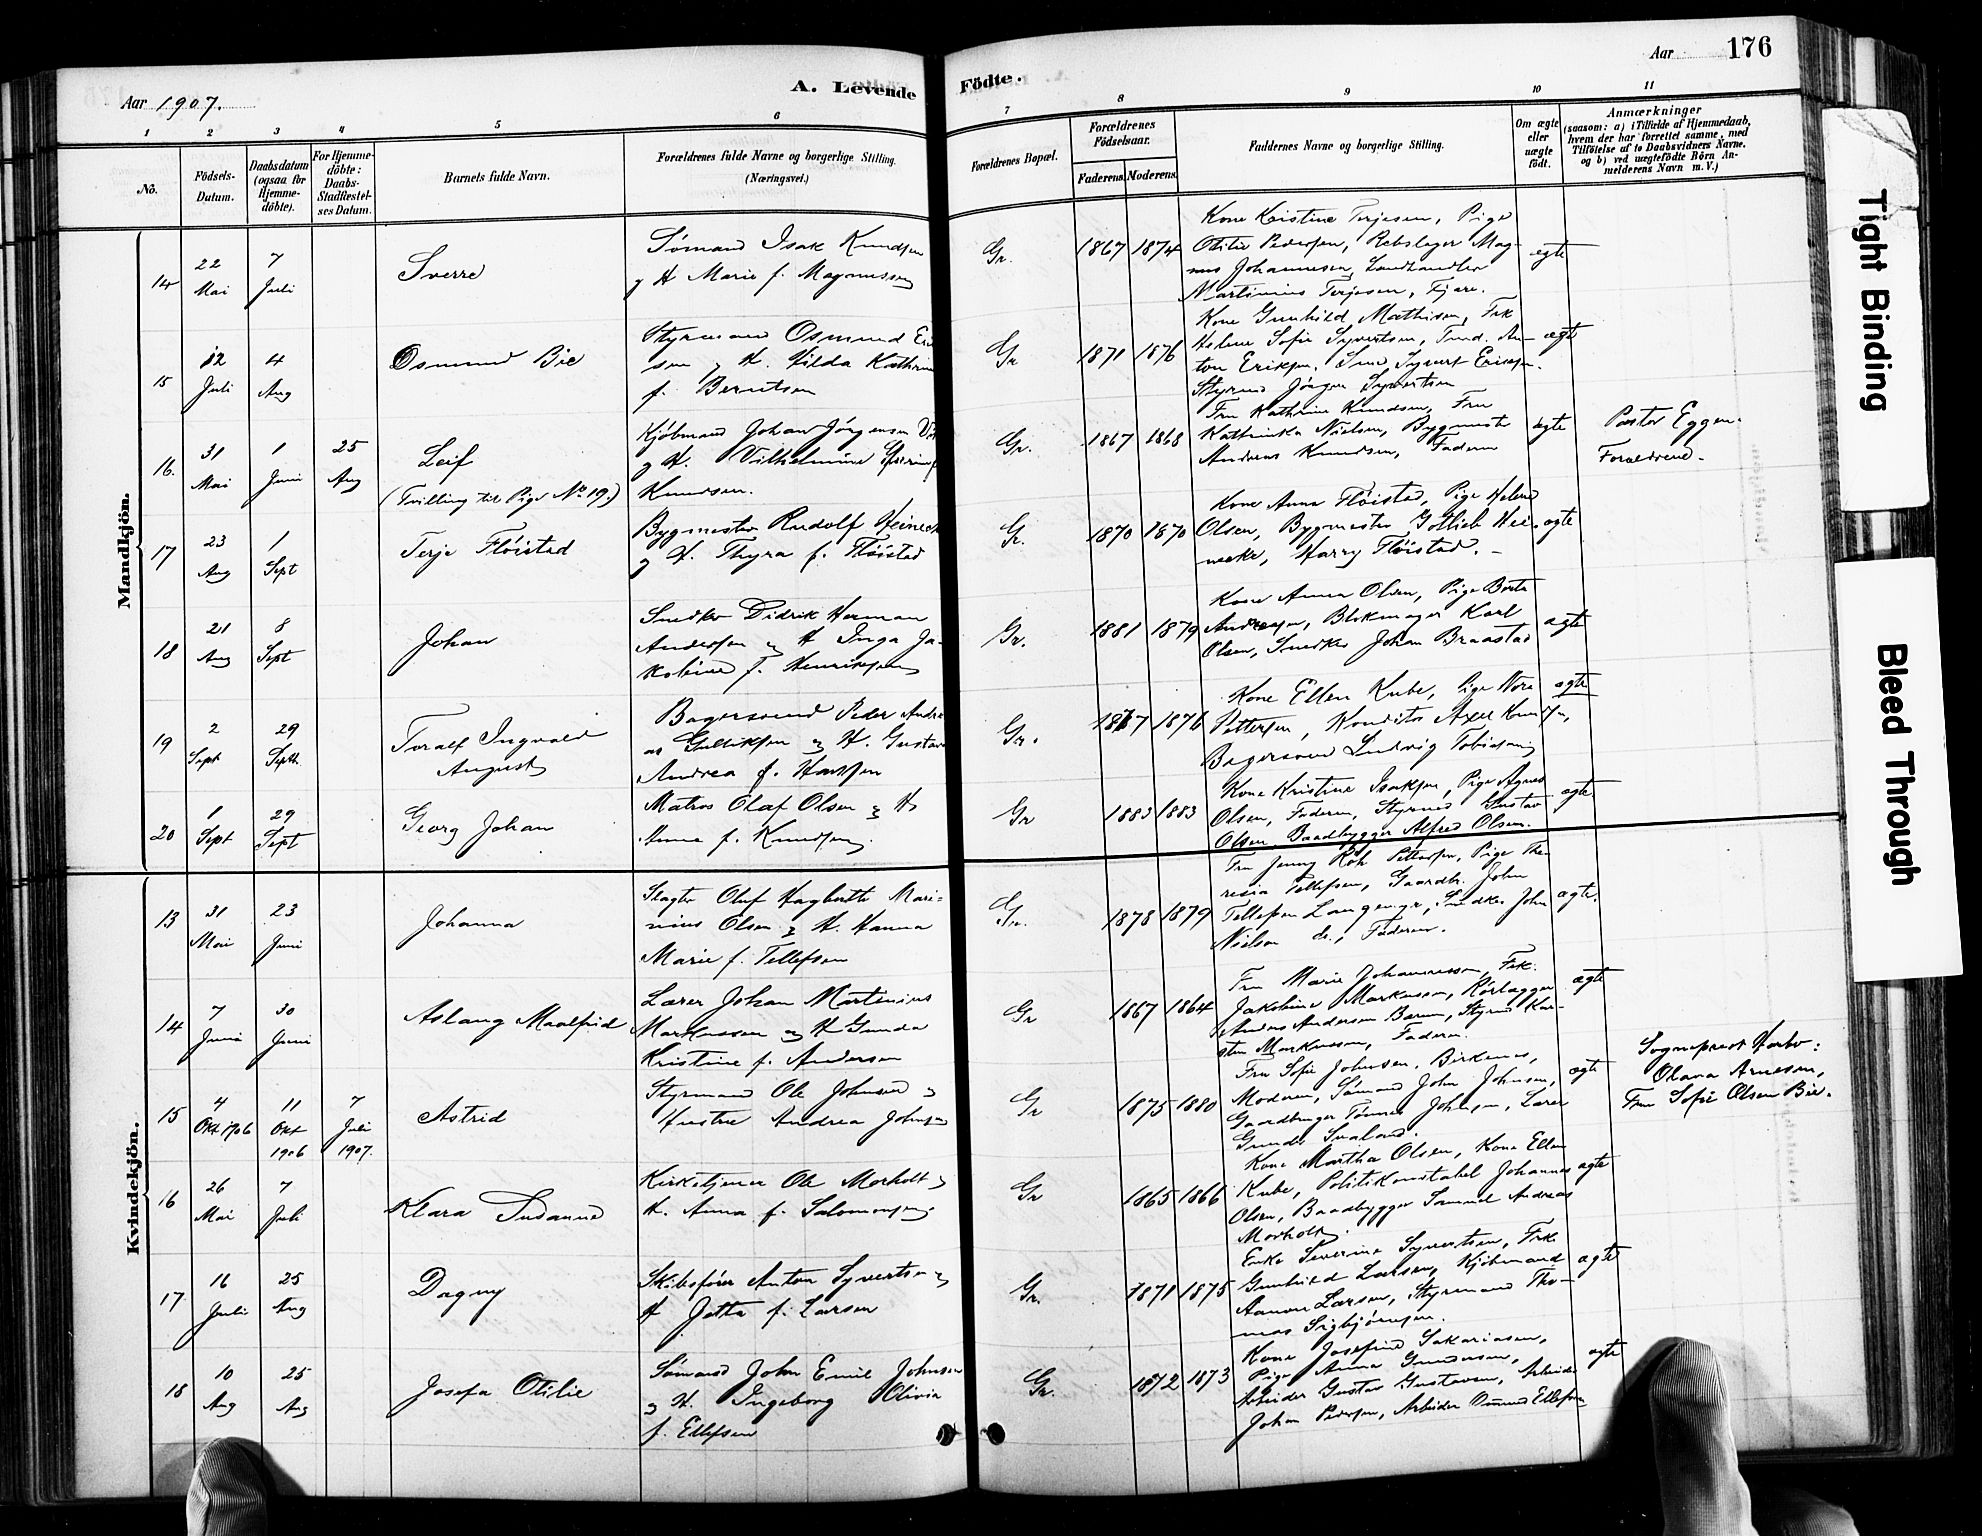 Aar 1907.
A. Levende
Födte.
Aar
176
1
2
3
4
5
6
7
8
9
10
11
No.
Födsels-
Datum.
Daabsdatum
(ogsaa for
Hjemme-
döbte).
For Hjemme-
döbte:
Daabs-
Stadfæstel-
ses Datum.
Barnets fulde Navn.
Forældrenes fulde Navne og borgerlige Stilling.
(Næringsvei.)
Forældrenes Bopæl.
Forældrenes
Födselsaar.
Faderens
Moderens
Faddernes Navne og borgerlige Stilling.
Om ægte
eller
uægte
födt.
Anmærkninger
(saasom: a) i Tilfælde af Hjemmedaab,
hvem der har forrettet samme, med
Tilföielse af to Daabsvidners Navne,
og b) ved uægtefödte Börn An-
melderens Navn m.V.)
Mandkjön.
14
22
Mai
7
Juli
Sverre
Sömand Isak Knudsen
og H Marie f. Magnussen
Gr.
1867
1874
Kone Kristine Terjesen, Pige
Otilie Pedersen, Rebslager Mag-
nus Johannesen, Landhandler
Martinius Terjesen, Fjære.
ægte
15
12
Juli
4
Aug
Osmund Bie
Styrmand Osmund
sen og H. Hilda Kathrine
f. Berntsen
Gr
1871
1876
Kone Gunhild Mathisen, Frk
Helene Sofie Syvertsen, Tømd. An-
ton Eriksen, Smed Syvert Eriksen.
Styrmd Jörgen Syvertsen
ægte
16
31
Mai
1
Juni
25
Aug
Leif
(Tvilling til Pige No 19.)
Kjöbmand Johan Jörgensen
og H. Vilhelmine Severine f
Knudsen.
Gr.
1867
1868
Fru Kathrine Knudsen, Fru
Kathinka Nielsen, Bygmester
Andreas Knudsen, Faderen
ægte
Pastor Eggen.
Forældrene.
17
23
Aug
1
Sept
Terje Flöistad
Bygmester Rudolf Heineck
og H. Thyra f. Flöistad
Gr.
1870
1870
Kone Anna Flöistad, Pige Helene
Olsen, Bygmester Gotlieb Hei-
necke, Harry Flöistad.
ægte
18
21
Aug
8
Sept
Johan
Snedker Didrik Herman
Andersen og H Inga Ja-
kobine f. Henriksen
Gr.
1881
1879
Kone Anna Olsen, Pige Berta
Andreasen, Blokmager Karl
Olsen, Snedker Johan Braastad
ægte
19
2
Sept
29
Septb.
Toralf Ingvald
August
Bagersvend Peder Andre
as Gulliksen og H. Gustava
Andrea f. Hansen
Gr.
1877
1876
Kone Ellen Kube, Pige Nora
Pettersen, Konditor Axel Knudsen,
Bagersvend Ludvig Tobiasen
ægte
20
1
Sept
29
Sept
Georg Johan
Matros Olaf Olsen og H
Anna f. Knudsen.
Gr
1883
1883
Kone Kristine Isaksen, Pige Agnes
Olsen, Faderen, Styrmd Gustav
Olsen. Baadbygger Alfred Olsen.
ægte
Kvindekjön.
13
31
Mai
23
Juni
Johanna
Slagter Oluf Hagbarth Mari-
nius Olsen og H. Hanna
Marie f. Tellefsen
Gr.
1878
1879
Fru Jenny Roh Pettersen, Pige The-
resia Tellefsen, Gaardbr. John
Tellefsen Langemyr, Snedker John
Nielsen ds., Faderen.
ægte.
14
7
Juni
30
Juni
Aslaug Maalfrid
Lærer Johan Martinius
Markussen og H Gunda
Kristine f. Andersen
Gr
1867
1864
Fru Marie Johannessen, Frk.
Jakobine Markussen,
Anders Andersen Barum, Styrmd Kar-
sten Markussen, Faderen.
ægte
15
4
Okt 1906
11
Okt
1906
7
Juli
1907.
Astrid
Styrmand Ole Johnsen og
Hustru Andrea Johnsen
Gr
1875
1880
Fru Sofie Johnsen, Birkenes,
Moderen, Sömand John Johnsen,
Gaardbruger Tönnes Johnsen, Lærer
Gunder Svaland.
ægte
Sogneprest Harbo:
Olava Arnesen,
Fru Sofie Olsen Bie.
16
26
Mai
7
Juli
Klara Susanna
Kirketjener Ole Morholt og
H. Anna f. Salomonsen.
Gr
1865
1866
Kone Martha Olsen, Kone Ellen
Kube, Politikonstabel Johannes
Olsen, Baadbygger Samuel Andreas
Morholt.
ægte
17
16
Juli
25
Aug
Dagny
Skibsförer Anton Syvertsen og
H Jetta f. Larsen
Gr.
1871
1875
Enke Severine Syvertsen, Frk
Gunhild Larsen, Kjöbmand
Aanon Larsen, Styrmand Tho-
mas Sigbjörnsen.
ægte
18
10
Aug
25
Aug
Josefa Otilie
Sömand John Emil Johnsen
og H. Ingeborg Olivia
f. Ellefsen
Gr.
1872
1873
Kone Josefine Sakariasen,
Pige Anna Gundersen,
Arbeider Gustav Gustavsen, Arbeider
Johan Pedersen, Arbeider Ommund Ellefsen
ægte
Tight Binding
Bleed Through